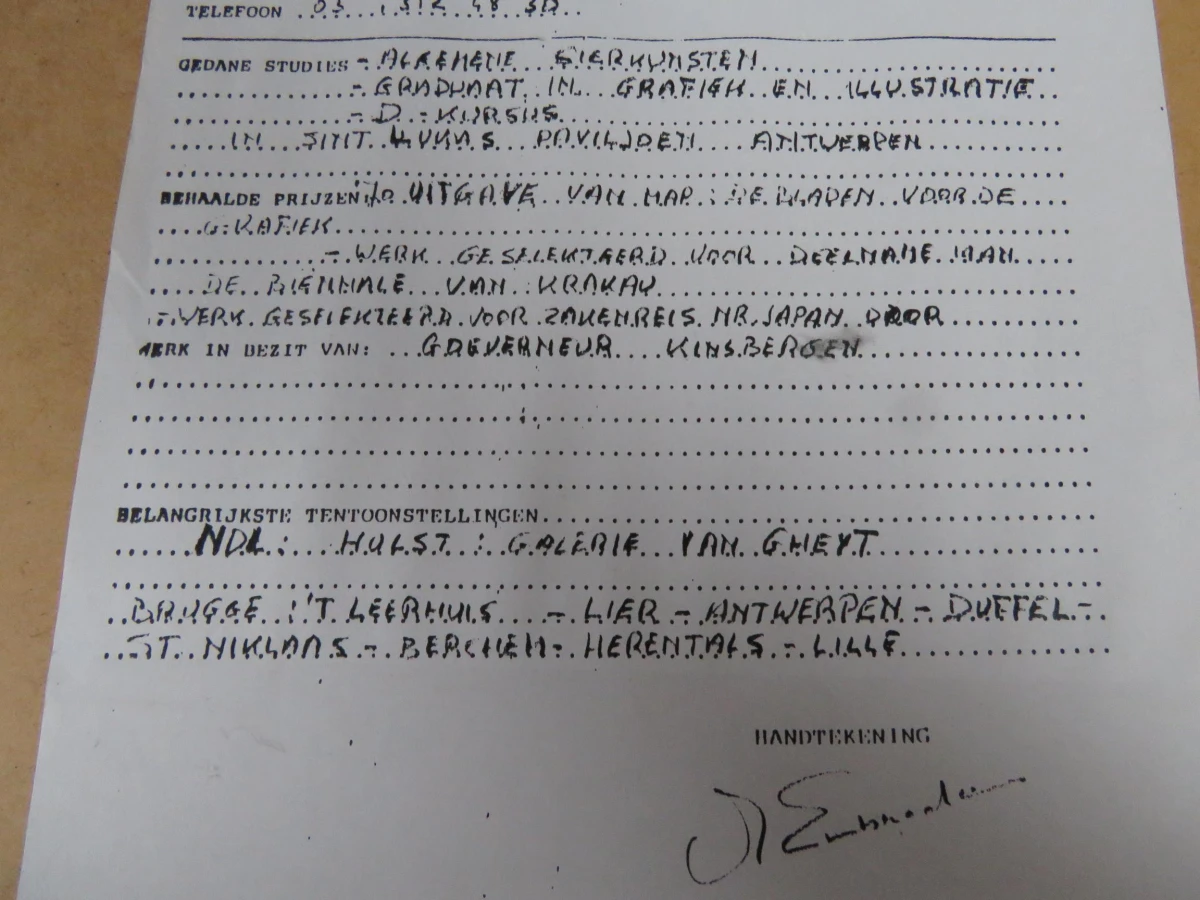 TELEFOON 03
GEDANE STUDIES - ALGEMENE SIERKUNSTEN
- GRADUAAT IN GRAFIEK EN ILLUSTRATIE
- D - KURSUS
IN SINT LUKAS PAVILJOEN ANTWERPEN
BEHAALDE PRIJZEN UITGAVE VAN MAP: DE BLADEN VOOR DE
GRAFIEK
- WERK GESELEKTEERD VOOR DEELNAME AAN
DE BIENNALE VAN KRAKAU
- WERK GESELEKTEERD VOOR ZAKENREIS NR JAPAN DOOR
WERK IN BEZIT VAN: GOEVERNEUR KINSBERGEN
BELANGRIJKSTE TENTOONSTELLINGEN
NDL: HULST: GALERIE VAN GHEYT
BRUGGE: 'T LEERHUIS - LIER - ANTWERPEN - DUFFEL -
ST. NIKLAAS - BERCHEM - HERENTALS - LILLE
HANDTEKENING